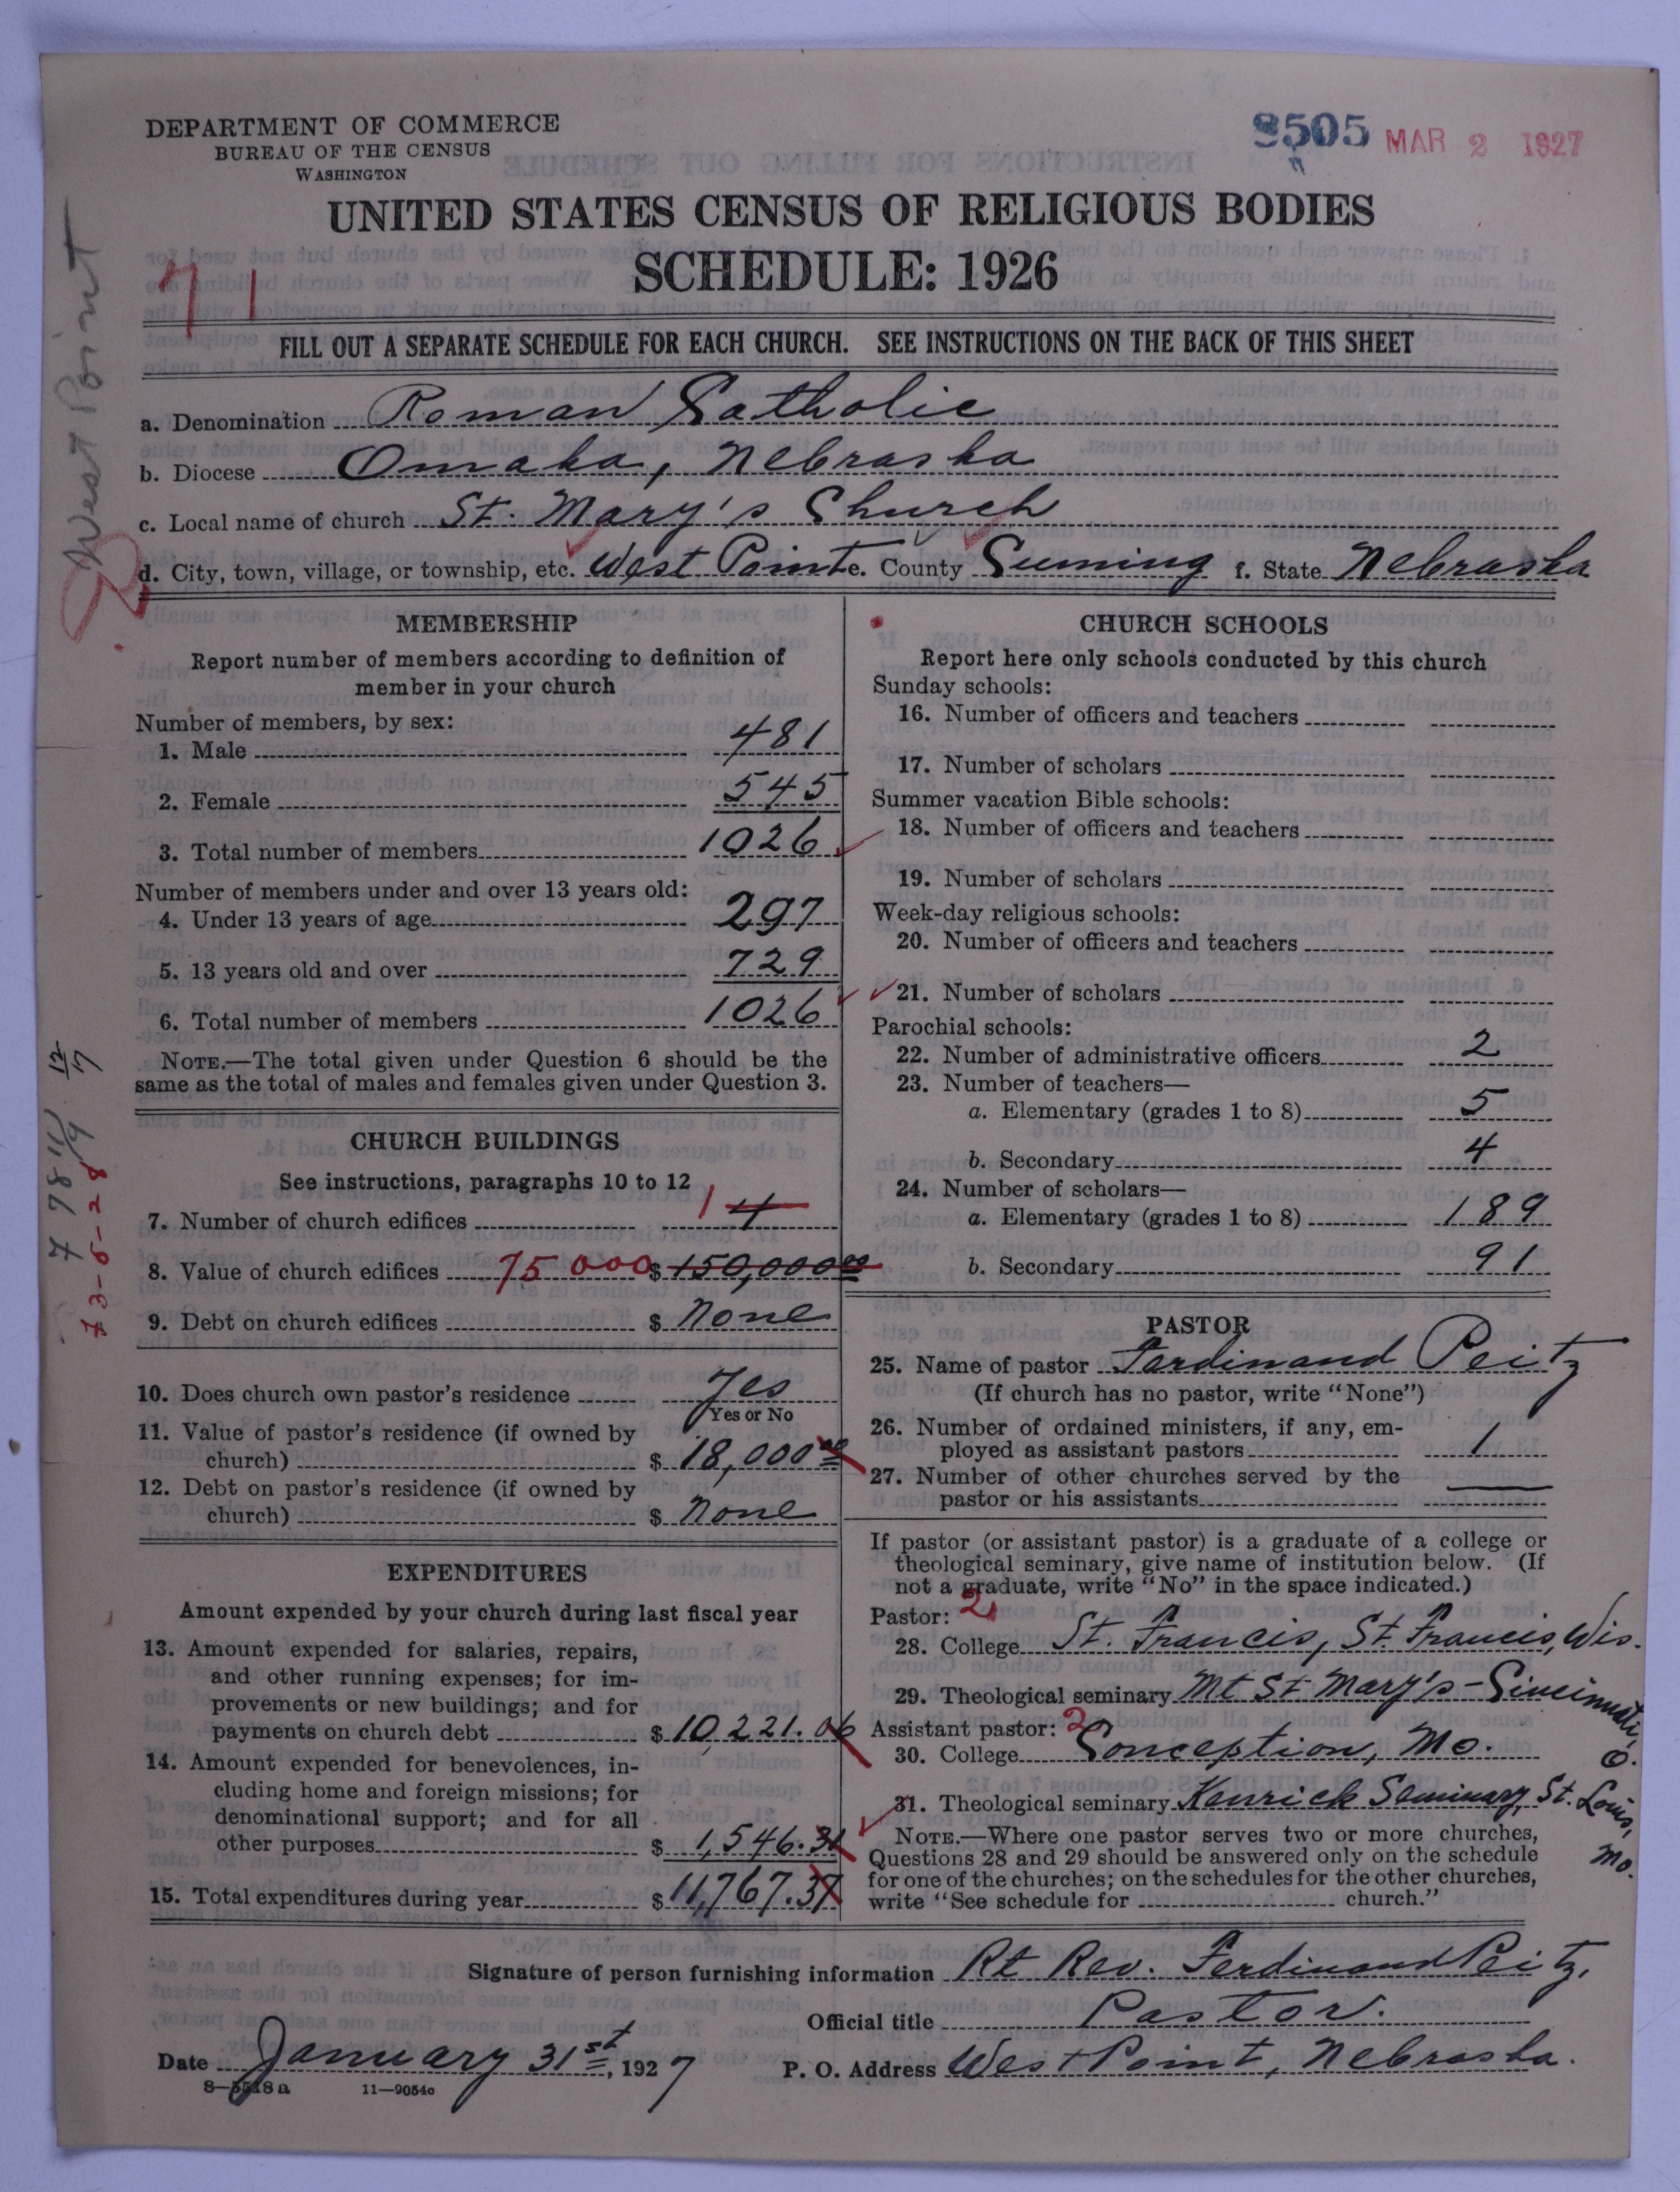 DEPARTMENT OF COMMERCE
BUREAU OF THE CENSUS
WASHINGTON
8505 MAR 2 1927
UNITED STATES CENSUS OF RELIGIOUS BODIES
SCHEDULE: 1926
71
West Point
FILL OUT A SEPARATE SCHEDULE FOR EACH CHURCH. SEE INSTRUCTIONS ON THE BACK OF THIS SHEET
a. Denomination Roman Catholic
b. Diocese Omaha, Nebraska
c. Local name of church St. Mary's Church
d. City, town, village, or township, etc. West Point e. County Cuming f. State Nebraska
MEMBERSHIP
Report number of members according to definition of
member in your church
Number of members, by sex:
1. Male 481
2. Female 545
3. Total number of members 1026
Number of members under and over 13 years old:
4. Under 13 years of age 297
5. 13 years old and over 729
6. Total number of members 1026
NOTE.—The total given under Question 6 should be the
same as the total of males and females given under Question 3.
CHURCH BUILDINGS
See instructions, paragraphs 10 to 12
7. Number of church edifices 1 4
8. Value of church edifices 75 000 $ 150,000 00
9. Debt on church edifices $ None
10. Does church own pastor's residence Yes
Yes or No
11. Value of pastor's residence (if owned by
church) $ 18,000 00
12. Debt on pastor's residence (if owned by
church) $ None
EXPENDITURES
Amount expended by your church during last fiscal year
13. Amount expended for salaries, repairs,
and other running expenses; for im-
provements or new buildings; and for
payments on church debt $ 10,221.06
14. Amount expended for benevolences, in-
cluding home and foreign missions; for
denominational support; and for all
other purposes $ 1,546.31
15. Total expenditures during year $ 11,767.37
CHURCH SCHOOLS
Report here only schools conducted by this church
Sunday schools:
16. Number of officers and teachers
17. Number of scholars
Summer vacation Bible schools:
18. Number of officers and teachers
19. Number of scholars
Week-day religious schools:
20. Number of officers and teachers
21. Number of scholars
Parochial schools:
22. Number of administrative officers 2
23. Number of teachers—
a. Elementary (grades 1 to 8) 5
b. Secondary 4
24. Number of scholars—
a. Elementary (grades 1 to 8) 189
b. Secondary 91
PASTOR
25. Name of pastor Ferdinand Peitz
(If church has no pastor, write "None")
26. Number of ordained ministers, if any, em-
ployed as assistant pastors 1
27. Number of other churches served by the
pastor or his assistants —
If pastor (or assistant pastor) is a graduate of a college or
theological seminary, give name of institution below. (If
not a graduate, write "No" in the space indicated.)
Pastor: 2
28. College St. Francis, St. Francis, Wis.
29. Theological seminary Mt St Mary's - Cincinnati, O.
Assistant pastor: 2
30. College Conception, Mo.
31. Theological seminary Kenrick Seminary, St. Louis, Mo.
NOTE.—Where one pastor serves two or more churches,
Questions 28 and 29 should be answered only on the schedule
for one of the churches; on the schedules for the other churches,
write "See schedule for church."
Signature of person furnishing information Rt Rev. Ferdinand Peitz,
Official title Pastor.
Date January 31st, 1927 P. O. Address West Point, Nebraska.
11—9054c